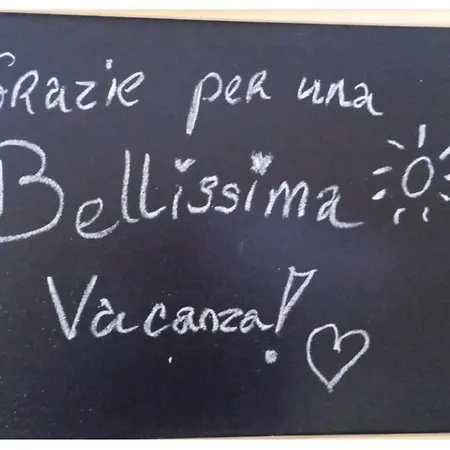 Grazie per una
Bellissima
Vacanza!